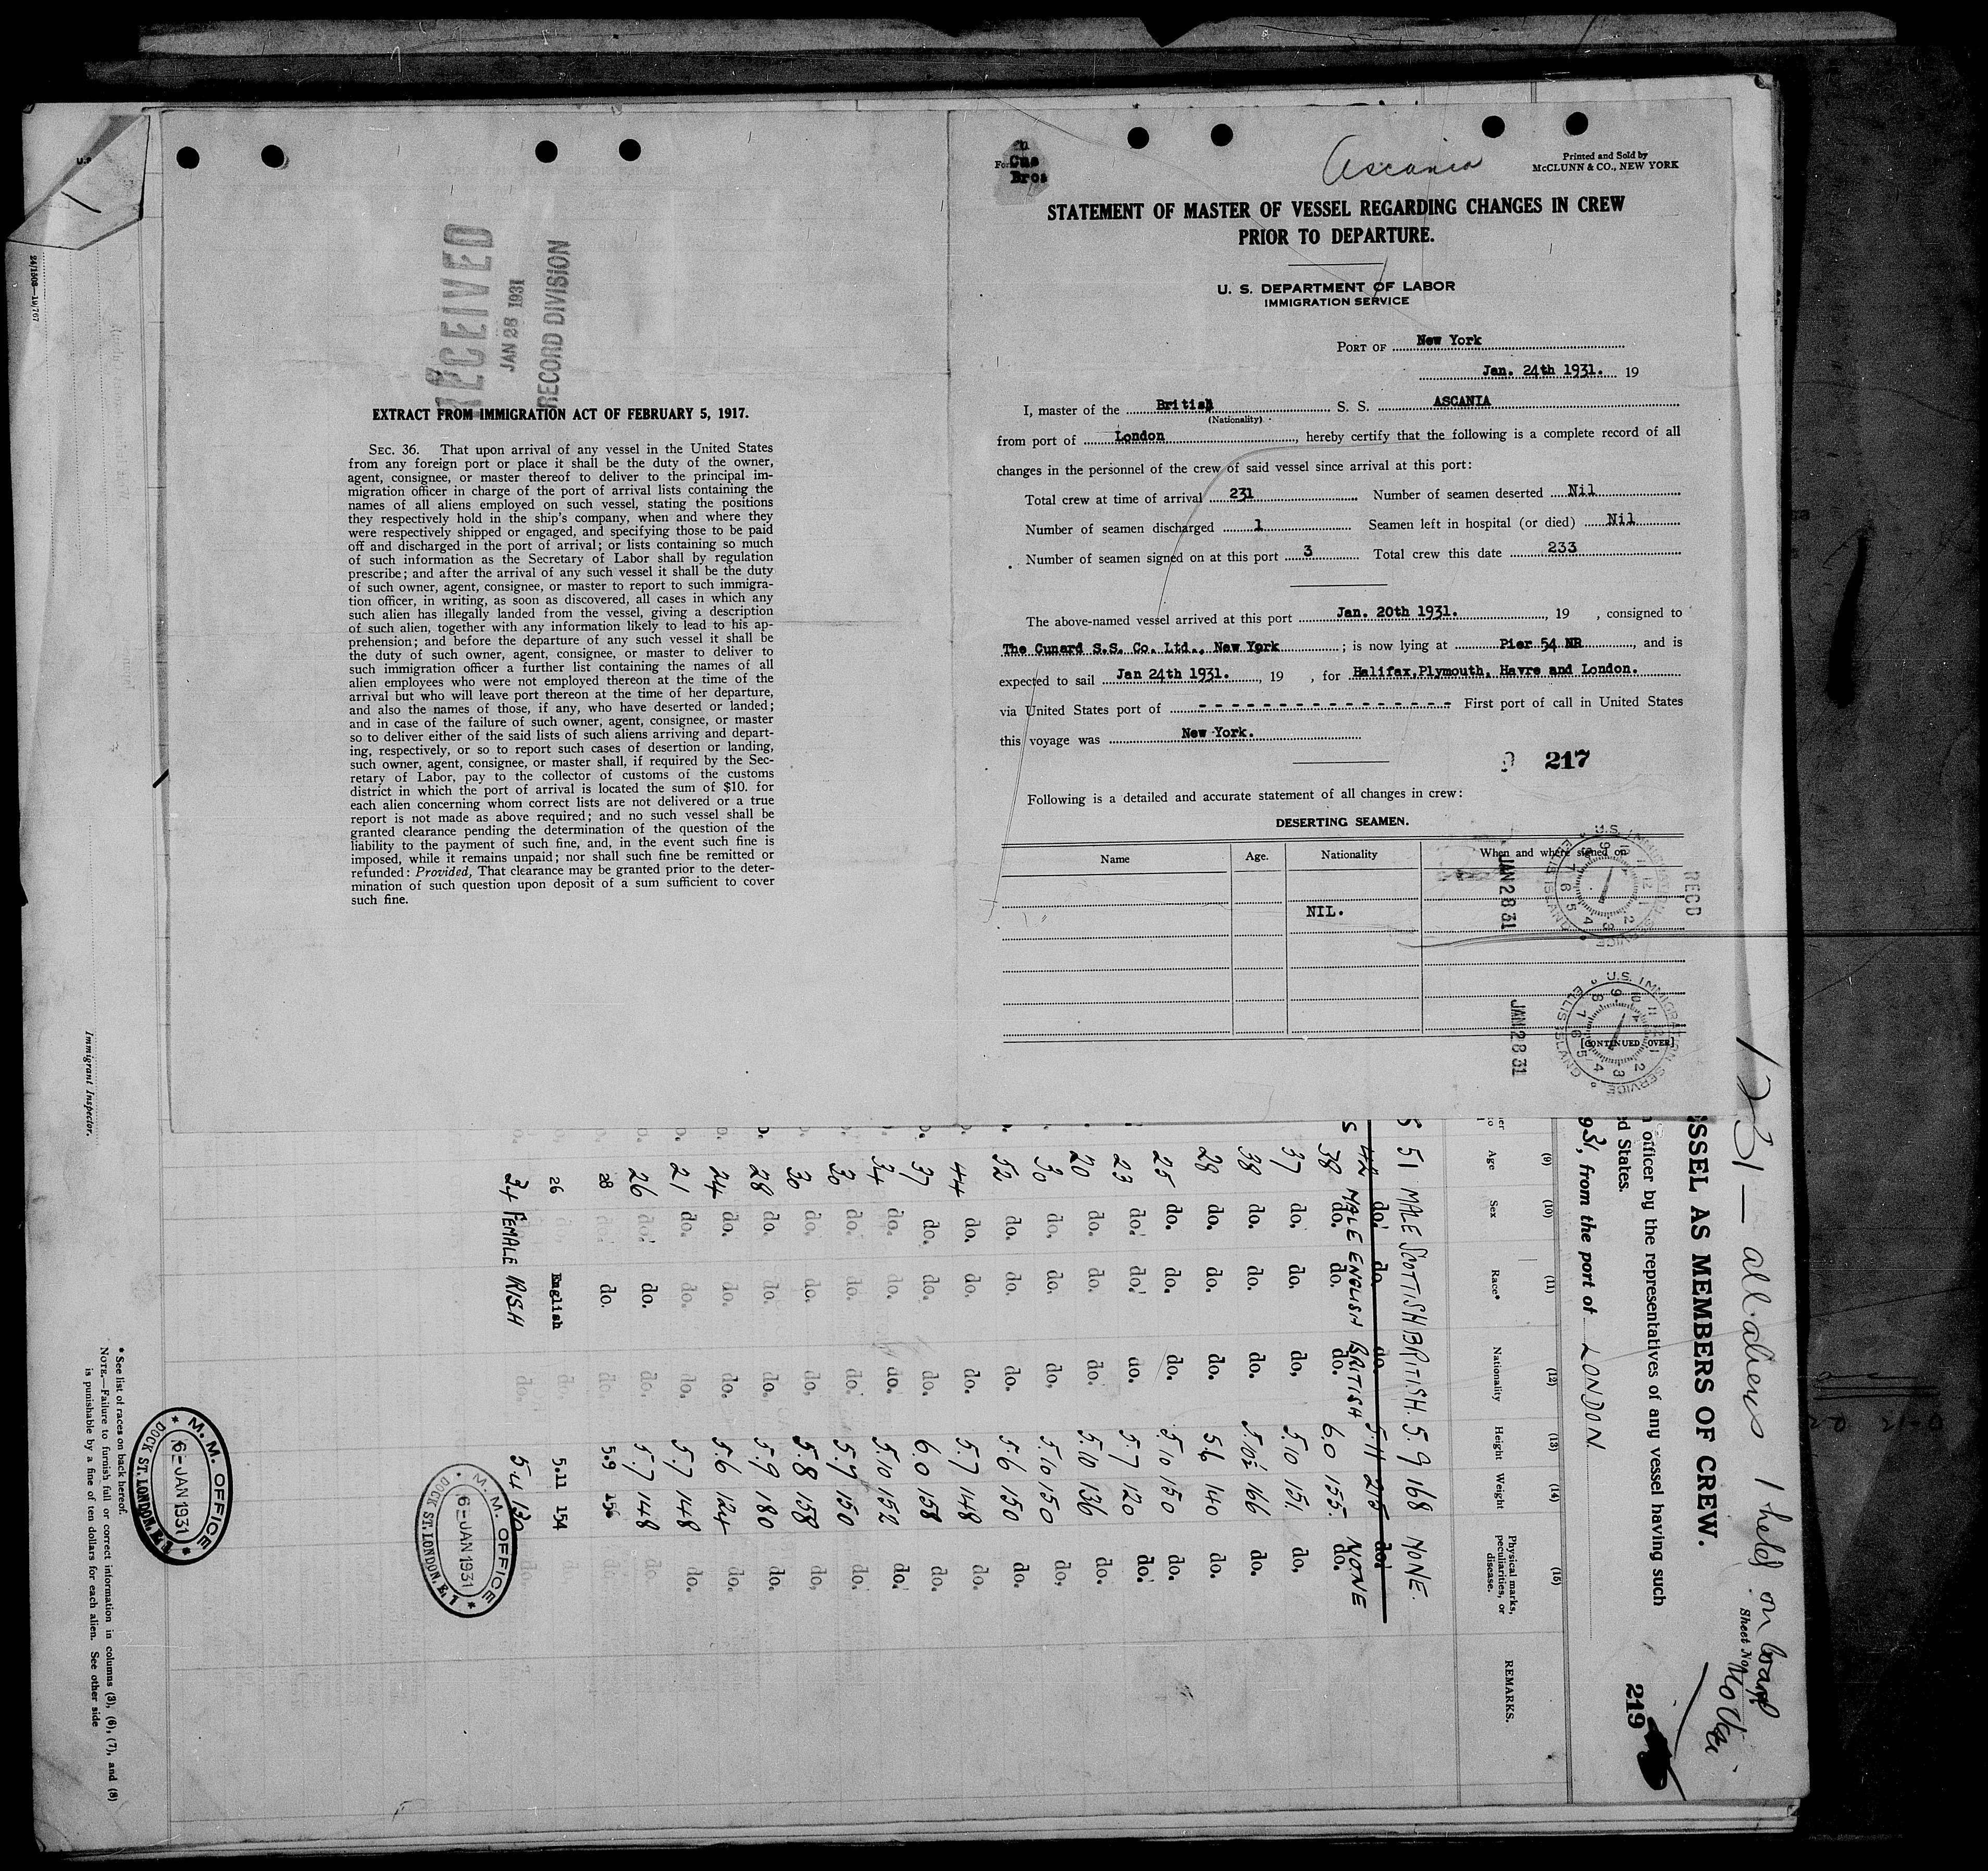 U.S
24/1508—19/767
RECEIVED
JAN 28 1931
RECORD DIVISION
EXTRACT FROM IMMIGRATION ACT OF FEBRUARY 5, 1917.
SEC. 36. That upon arrival of any vessel in the United States
from any foreign port or place it shall be the duty of the owner,
agent, consignee, or master thereof to deliver to the principal im-
migration officer in charge of the port of arrival lists containing the
names of all aliens employed on such vessel, stating the positions
they respectively hold in the ship's company, when and where they
were respectively shipped or engaged, and specifying those to be paid
off and discharged in the port of arrival; or lists containing so much
of such information as the Secretary of Labor shall by regulation
prescribe; and after the arrival of any such vessel it shall be the duty
of such owner, agent, consignee, or master to report to such immigra-
tion officer, in writing, as soon as discovered, all cases in which any
such alien has illegally landed from the vessel, giving a description
of such alien, together with any information likely to lead to his ap-
prehension; and before the departure of any such vessel it shall be
the duty of such owner, agent, consignee, or master to deliver to
such immigration officer a further list containing the names of all
alien employees who were not employed thereon at the time of the
arrival but who will leave port thereon at the time of her departure,
and also the names of those, if any, who have deserted or landed;
and in case of the failure of such owner, agent, consignee, or master
so to deliver either of the said lists of such aliens arriving and depart-
ing, respectively, or so to report such cases of desertion or landing,
such owner, agent, consignee, or master shall, if required by the Sec-
retary of Labor, pay to the collector of customs of the customs
district in which the port of arrival is located the sum of $10. for
each alien concerning whom correct lists are not delivered or a true
report is not made as above required; and no such vessel shall be
granted clearance pending the determination of the question of the
liability to the payment of such fine, and, in the event such fine is
imposed, while it remains unpaid; nor shall such fine be remitted or
refunded: Provided, That clearance may be granted prior to the deter-
mination of such question upon deposit of a sum sufficient to cover
such fine.
For Cus
Bros
Ascania
Printed and Sold by
McCLUNN & CO., NEW YORK
STATEMENT OF MASTER OF VESSEL REGARDING CHANGES IN CREW
PRIOR TO DEPARTURE.
U. S. DEPARTMENT OF LABOR
IMMIGRATION SERVICE
PORT OF New York
Jan. 24th 1931. 19
I, master of the British S. S. ASCANIA
(Nationality)
from port of London, hereby certify that the following is a complete record of all
changes in the personnel of the crew of said vessel since arrival at this port:
Total crew at time of arrival 231 Number of seamen deserted Nil
Number of seamen discharged 1 Seamen left in hospital (or died) Nil
Number of seamen signed on at this port 3 Total crew this date 233
The above-named vessel arrived at this port Jan. 20th 1931., 19 , consigned to
The Cunard S.S. Co. Ltd., New York; is now lying at Pier 54 NR, and is
expected to sail Jan 24th 1931., 19 , for Halifax,Plymouth, Havre and London.
via United States port of - - - - - - - - - - - - - - - - First port of call in United States
this voyage was New York.
217
Following is a detailed and accurate statement of all changes in crew:
DESERTING SEAMEN.
Name Age. Nationality When and where signed on
NIL.
[CONTINUED OVER]
JAN 28 31
RECD
U.S. IMMIGRATION SERVICE ELLIS ISLAND
JAN 28 31
U.S. IMMIGRATION SERVICE ELLIS ISLAND
1231 — all aliens 1 held on board
Sheet No.
219
SSEL AS MEMBERS OF CREW.
officer by the representatives of any vessel having such
d States.
931, from the port of LONDON.
(9) (10) (11) (12) (13) (14) (15)
Age Sex Race* Nationality Height Weight Physical marks, peculiarities, or disease. REMARKS.
51 MALE SCOTTISH BRITISH. 5.9 168 NONE.
42 do. do. do. 5.11 215 do.
MALE ENGLISH BRITISH NONE
38 do. do. do. 6.0 155. do.
37 do. do. do. 5.10 151. do.
38 do. do. do. 5.10½ 166 do.
28 do. do. do. 5.6 140 do.
25 do. do. do. 5.10 150 do.
23 do. do. do. 5.7 120 do.
20 do. do. do. 5.10 136 do.
30 do. do. do. 5.10 150 do.
52 do. do. do. 5.6 150 do.
44 do. do. do. 5.7 148 do.
37 do. do. do. 6.0 158 do.
34 do. do. do. 5.10 152 do.
30 do. do. do. 5.7 150 do.
30 do. do. do. 5.8 158 do.
28 do. do. do. 5.9 180 do.
24 do. do. do. 5.6 124 do.
21 do. do. do. 5.7 148 do.
26 do. do. do. 5.7 148 do.
28 do. do. do. 5.9 156 do.
26 do. English do. 5.11 154 do.
34 FEMALE IRISH do. 5.4 130 do.
M. M. OFFICE
6-JAN 1931
DOCK ST. LONDON. E.1
M. M. OFFICE
6-JAN 1931
DOCK ST. LONDON. E.1
Immigrant Inspector.
* See list of races on back hereof.
NOTE.—Failure to furnish full or correct information in columns (3), (6), (7), and (8)
is punishable by a fine of ten dollars for each alien. See other side